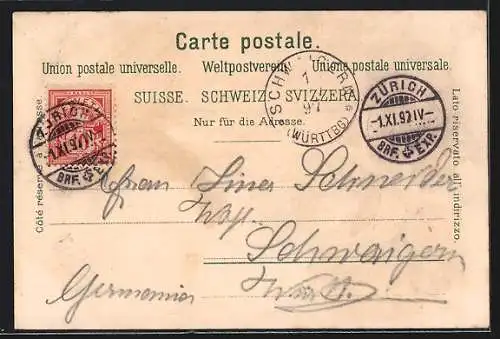 Carte postale.
Union postale universelle. Weltpostverein. Unione postale universale.
SUISSE. SCHWEIZ. SVIZZERA.
Nur für die Adresse.
Côté réservé à l'adresse.
Lato riservato all'indirizzo.
ZÜRICH
-1.XI.97.IV-
BRF. EXP.
SCHWAIGERN
1
97
(WÜRTTBG)
ZÜRICH
-1.XI.97.IV-
BRF. EXP.
Schneider
Schwaigern
Germania